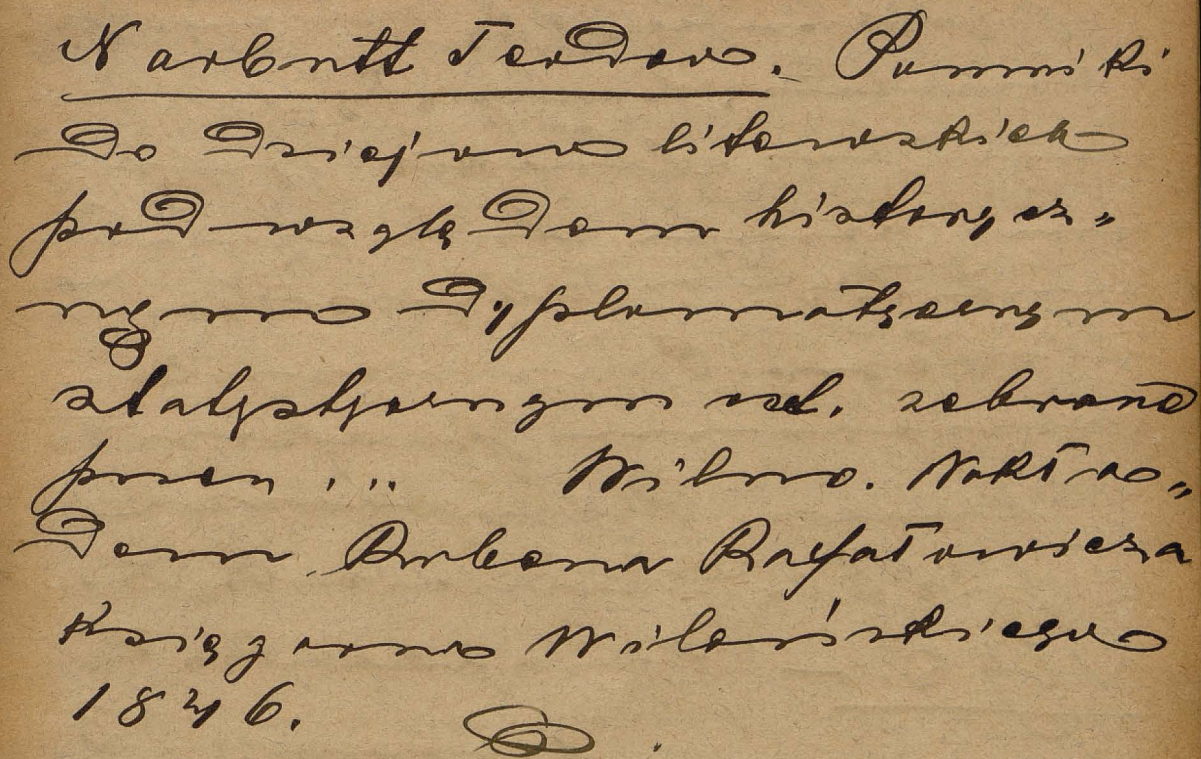 Narbutt Teodor. Pomniki
do dziejow litewskich
pod względem historycz„
nym dyplomatycznym
statystycznym od. zebrane
przez ... Wilno. Nakła„
dem Rubena Rafałowicza
Księgarza Wileńskiego
1846.